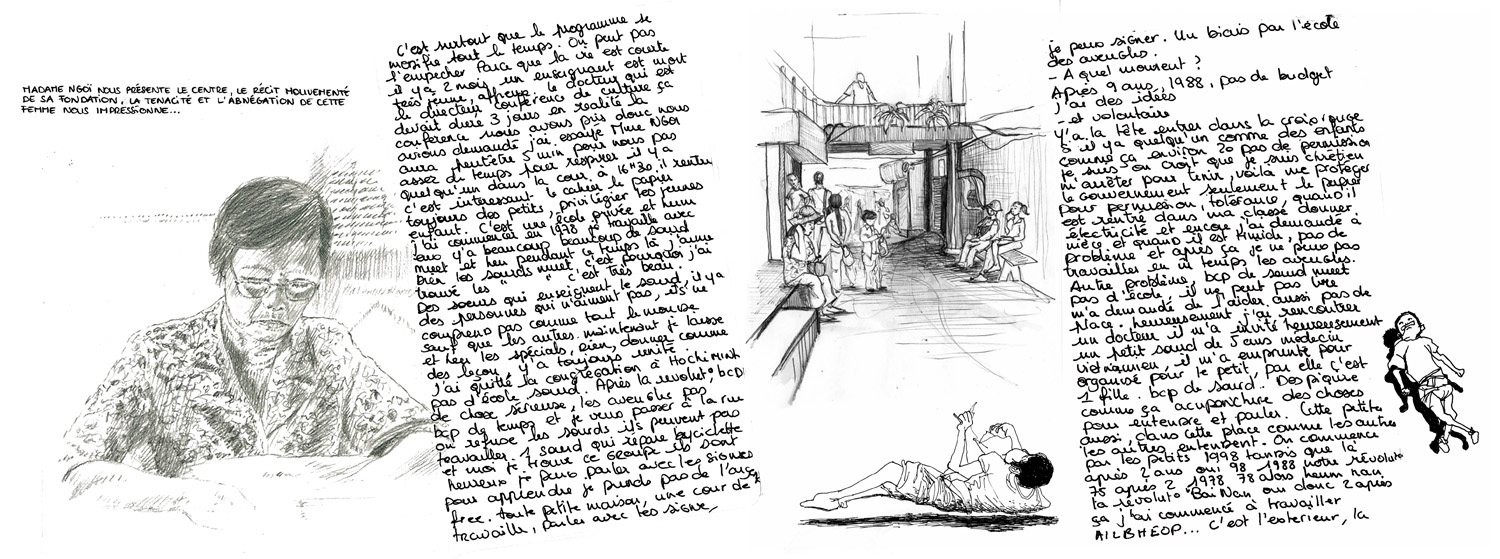 MADAME NGOÏ NOUS PRÉSENTE LE CENTRE, LE RÉCIT MOUVEMENTÉ
DE SA FONDATION, LA TENACITÉ ET L'ABNÉGATION DE CETTE
FEMME NOUS IMPRESSIONNE...
C'est surtout que le programme se
modifie tout le temps. On peut pas
l'empecher parce que la vie est courte
il y a 2 mois, un enseignant est mort
très jeune, affreux, le docteur qui est
le directeur conférence de culture ça
devait dure 3 jours en realité la
conférence nous avons pris donc nous
avions demandé j'ai essayé Mme NGOI
aura peutêtre 5 min pour nous pas
assez de temps pour respirer il y a
quelqu'un dans la cour. à 16H30. il rentru
c'est interessant. le cahier le papier
toujours des petits, privilégier les jeunes
enfant. C'est une école privée et hum
j'ai commencé en 1978 je travaille avec
eux y'a beaucoup beaucoup de sourd
muet et heu pendant ce temps là j'aime
bien les sourds muet c'est pourquoi j'ai
trouvé les " " c'est très beau.
Des sœurs qui enseignent le sourd, il y a
des personnes qui n'aiment pas, ils ne
comprend pas comme tout le monde
sauf que les autres. maintenant je laisse
et heu les spécials, rien, donner comme
des leçon, y'a toujours unité
j'ai quitté la congrégation à Ho chi MINH
pas d'école sourd. Après la revolut°, bcD
de chose sérieuse, les aveugles pas
bcp de temps et je veux passer à la rue
on refuse les sourds ils peuvent pas
travailler. 1 sourd qui répare bycicilette
et moi je trouve ce groupe ils sont
heureux je peux parler avec les signes
pour apprendre je prends pas de l'argt
free. toute petite maison, une cour de
travaille, parler avec les signe,
je peux signer. Un biais par l'école
des aveugles.
- A quel moment ?
Après 9 ans, 1988, pas de budget
j'ai des idées
- et volontaire
Y'a la tête entrer dans la croix rouge
s'il ya quelqu'un comme des enfants
comme ça environ 20 pas de permission
je suis on croit que je suis chrétien
m'arrêter pour tenir, voilà me protéger
le Gouvernement seulement le papier
pour permission, tolérance, quand il
est rentré dans ma classe donner
électricité et encore j'ai demandé à
nièce et quand il est timide, pas de
problème et après ça je ne peux pas
travailler en m̂ temps les aveugles.
Autre problème, bcp de sourd muet
pas d'école, il ne peut pas lire
m'a demandé de l'aider aussi pas de
place. heureusement j'ai rencontrer
un docteur il m'a invité heureusement
un petit sourd de 5 ans médecin
vietnamien, il m'a emprunté pour
organisé pour le petit, par elle c'est
1 fille. bcp de sourd.. Des piqure
comme ça acuponcture des choses
pour entendre et parler. Cette petite
aussi, dans cette place comme les autres
les autres entendent. On commence
par les petits 1998 tandis que là
après 2 ans oui 98 1988 notre révolut°
75 après 2 1978 78 alors heum nan
la révoluto Bai Nan oui donc 2 après
ça j'ai commencé à travailler
AILBHEOP... C'est l'exterieur, la